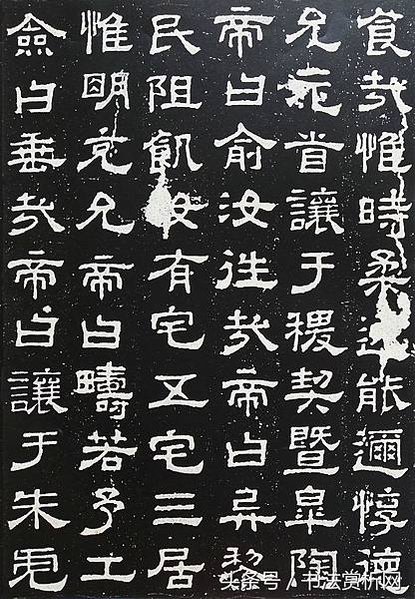 食哉惟時柔遠能邇惇德
允元首讓于稷契暨皋陶
帝曰俞汝往哉帝曰弃黎
民阻飢汝有宅五宅三居
惟明克允帝曰疇若予土
僉曰垂哉帝曰讓于朱虎
头条号 / 书法赏析网